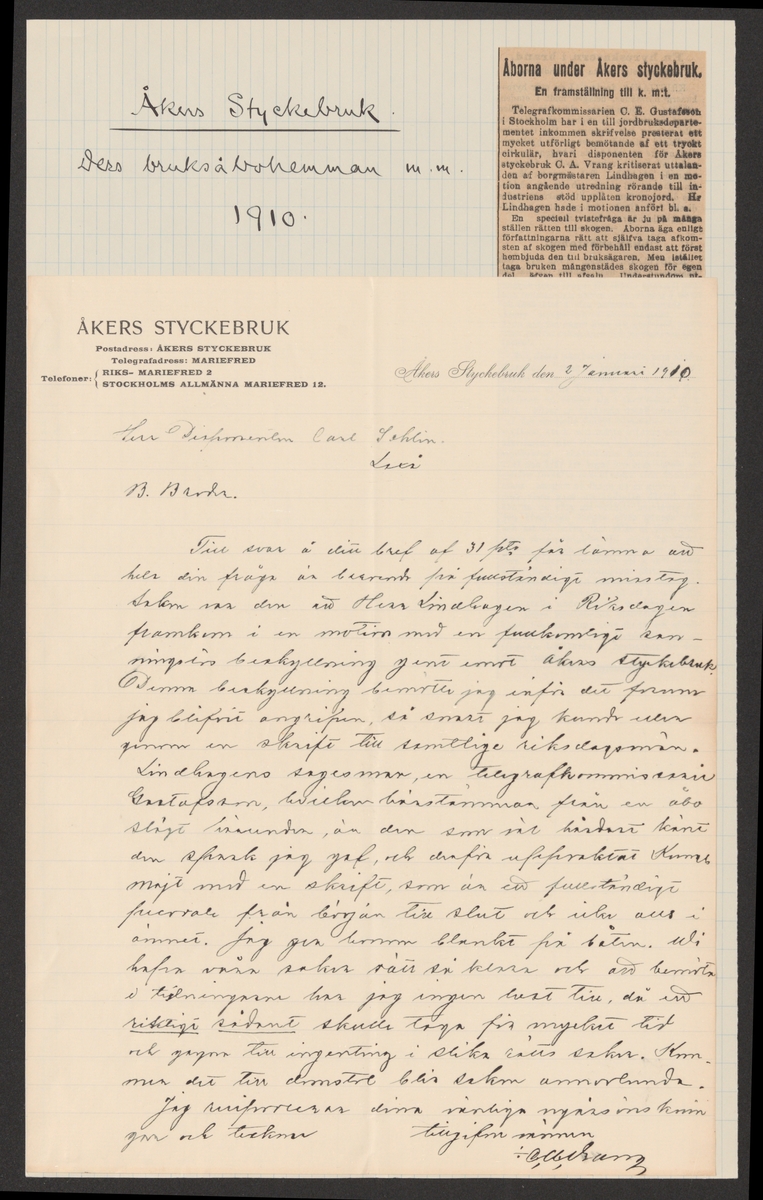 Åkers Styckebruk.
Ders bruksåbohemman m.m.
1910.
Åborna under Åkers styckebruk.
En framställning till k. m:t.
Telegrafkommissarien C. E. Gustafsson
i Stockholm har i en till jordbruksdeparte-
mentet inkommen skrifvelse presterat ett
mycket utförligt bemötande af ett tryckt
cirkulär, hvari disponenten för Åkers
styckebruk C. A. Vrang kritiserat uttalan-
den af borgmästaren Lindhagen i en mo-
tion angående utredning rörande till in-
dustriens stöd upplåten kronojord. Hr
Lindhagen hade i motionen anfört bl. a.
En speciell tvistefråga är ju på många
ställen rätten till skogen. Åborna äga enligt
författningarna rätt att själfva taga afkom-
sten af skogen med förbehåll endast att först
hembjuda den till bruksägaren. Men istället
taga bruken mångenstädes skogen för egen
del, äfven till afsalu. Understundom
ÅKERS STYCKEBRUK
Postadress: ÅKERS STYCKEBRUK
Telegrafadress: MARIEFRED
Telefoner: RIKS- MARIEFRED 2
STOCKHOLMS ALLMÄNNA MARIEFRED 12.
Åkers Styckebruk den 2 Januari 1910.
Herr Disponenten Carl Sahlin.
Laxå
B. Broder.
Till svar å ditt bref af 31 pto får lämna att
hela din fråga är beroende på fullständigt misstag.
Saken var den att Herr Lindhagen i Riksdagen
framkom i en motion med en fullkomligt san-
ningslös beskyllning gent emot Åkers styckebruk.
Denna beskyllning bemötte jag inför det forum
jag blifvit angripen, så snart jag kunde
genom en skrift till samtlige riksdagsmän.
Lindhagens sagesman, en telegrafkommissarie
Gustafsson, hvilken härstammar från en åbo
slägt härunder, är den som såt hårdast känt
den spark jag gaf, och derför uppvaktat Kungl
majt med en skrift, som är ett fullständigt
från början till slut och icke alls i
ämnet. Jag gea honom blankt på båten. Wi
hafva våra saker rätt så klara och att bemöta
i tidningarne har jag ingen lust till, då ett
riktigt sådant skulle taga för mycket tid
och gagna till ingenting i slika rätts saker. Kom-
mer det till domstol blir saken annorlunda.
Jag reciprocerar dina vänliga nyårsönsknin
gar och tecknar tillgifne vännen
CAVrang